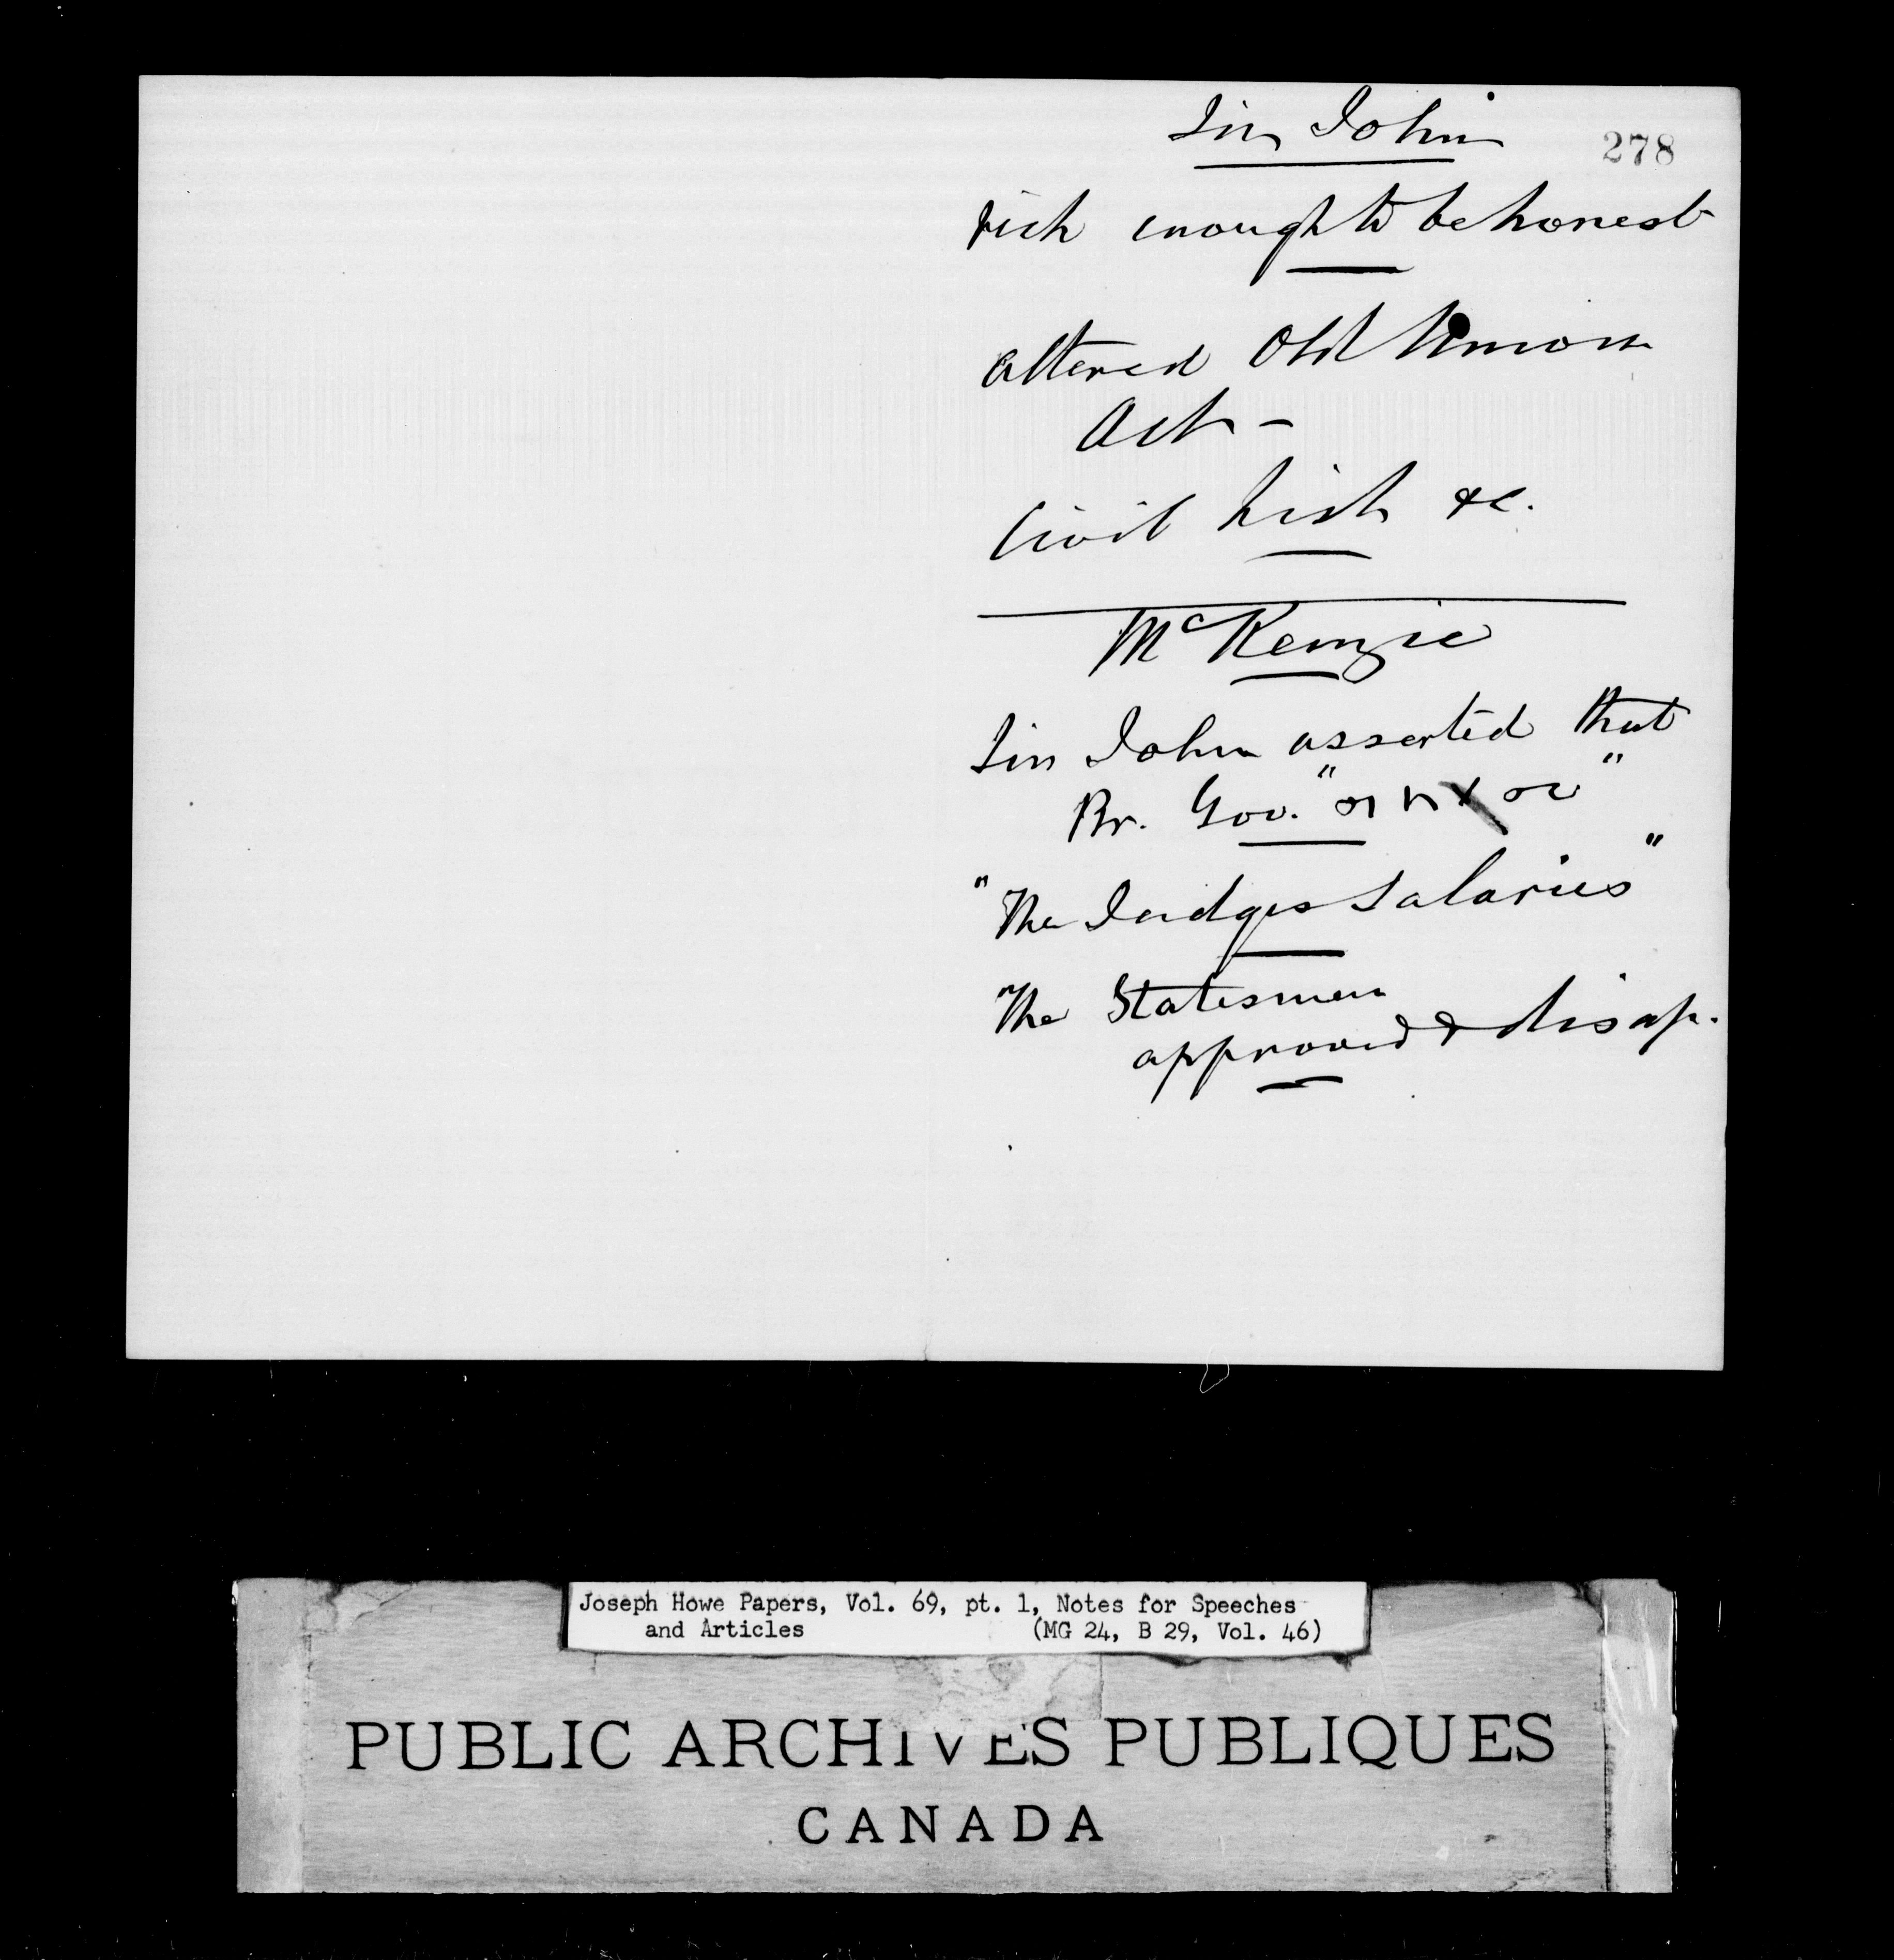 Sir John
278
rich enough to be honest
altered Old Union
Act –
Civil List &c.
McKenzie
Sir John asserted that
Br. Gov.
"The Judges Salaries"
The Statesmen
approved & disap.
Joseph Howe Papers, Vol. 69, pt. 1, Notes for Speeches
and Articles (MG 24, B 29, Vol. 46)
PUBLIC ARCHIVES PUBLIQUES
CANADA